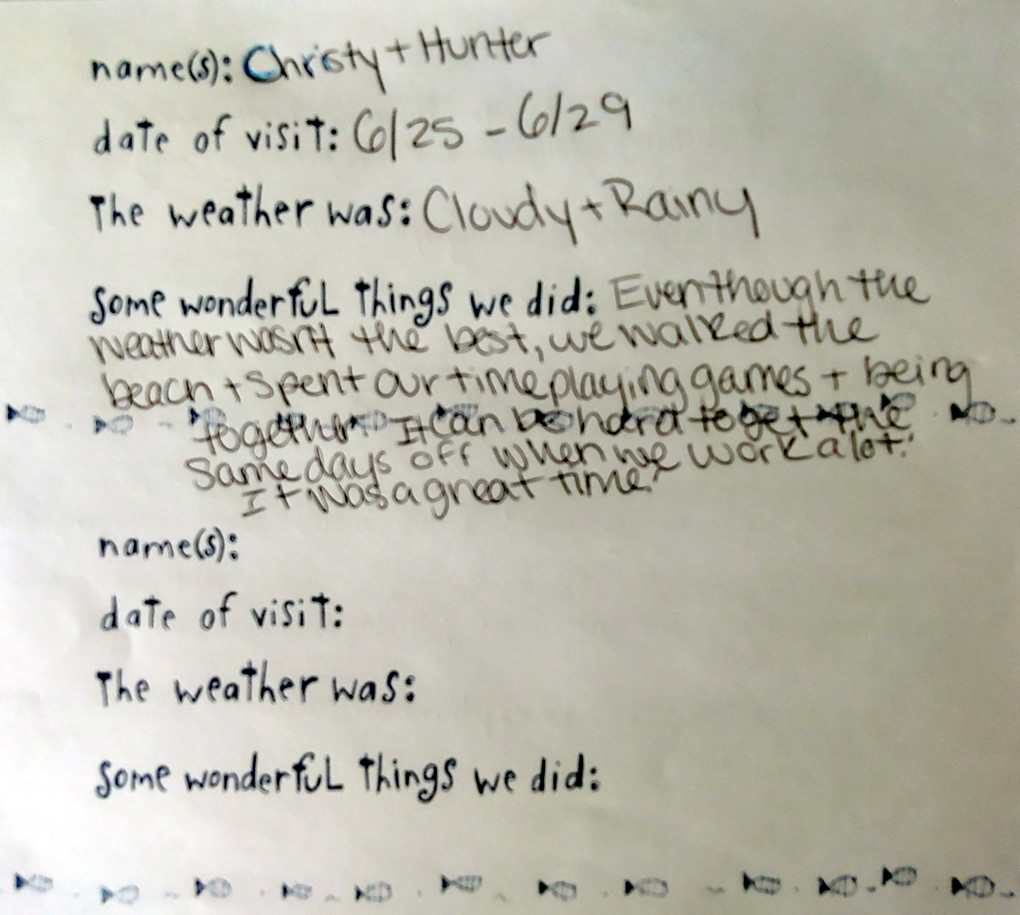 name(s): Christy + Hunter
date of visit: 6/25 - 6/29
The weather was: Cloudy + Rainy
Some wonderful things we did: Even though the
weather wasn't the best, we walked the
beach + spent our time playing games + being
together. It can be hard to get the
same days off when we work a lot!
It was a great time!
name(s):
date of visit:
The weather was:
Some wonderful things we did: